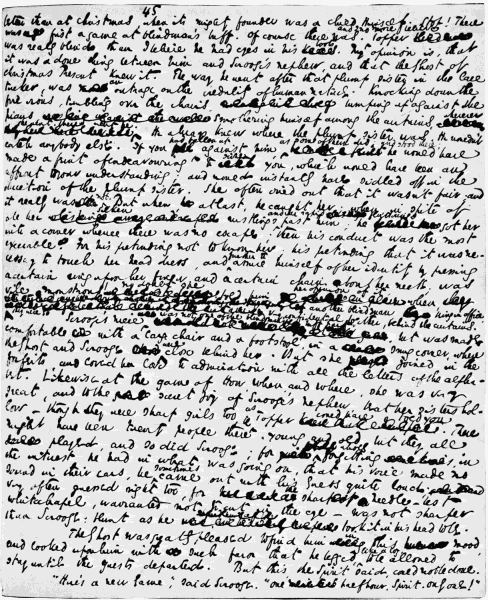 45
better than at Christmas, when its mighty founder was a child himself. Stop! There
was first a game at blindman's buff. Of course there was. And I no more believe Topper
was really blind than I believe he had eyes in his boots. My opinion is, that
it was a done thing between him and Scrooge's nephew, and that the Ghost of
Christmas Present knew it. The way he went after that plump sister in the lace
tucker, was an outrage on the credulity of human nature. Knocking down the
fire irons, tumbling over the chairs, bumping up against the
piano, smothering himself among the curtains, wherever
she went, there went he. He always knew where the plump sister was. He wouldn't
catch anybody else. If you had fallen up against him as some of them did, and stood there, he would have
made a feint of endeavouring to seize you, which would have been an
affront to your understanding, and would instantly have sidled off in the
direction of the plump sister. She often cried out that it wasn't fair, and
it really was not. But when at last, he caught her; when, in spite of
all her silken rustlings, and her rapid flutterings past him, he got her
into a corner whence there was no escape; then his conduct was the most
execrable. For his pretending not to know her; his pretending that it was ne-
cessary to touch her head dress, and further to assure himself of her identity by pressing
a certain ring upon her finger, and a certain chain about her neck, was
vile, monstrous! No doubt she told him her opinion of it, when
another blindman being in office
they were so very confidential together, behind the curtains.
Scrooge's niece was not one of the blindman's buff party, but was made
comfortable with a large chair and a footstool in a snug corner, where
the Ghost and Scrooge were close behind her. But she joined in the
forfeits, and loved her love to admiration with all the letters of the alpha-
bet. Likewise at the game of How When and Where, she was very
great, and to the secret joy of Scrooge's nephew, beat her sisters hol-
low — though they were sharp girls too, as Topper could have told you. There
might have been twenty people there, young and old, but they all
played, and so did Scrooge; for, forgetting, in
the interest he had in what was going on, that his voice made no
sound in their ears, he sometimes came out with his guess quite loud, and
very often guessed right too; for the sharpest needle, best
Whitechapel, warranted not to cut in the eye — was not sharper
than Scrooge: blunt as he took it in his head to be.
The Ghost was greatly pleased to find him in this mood
and looked upon him with such favor that he begged like a boy to be allowed to
stay until the guests departed. But this the Spirit said could not be done.
"Here's a new game," said Scrooge. "One half hour, Spirit, only one!"